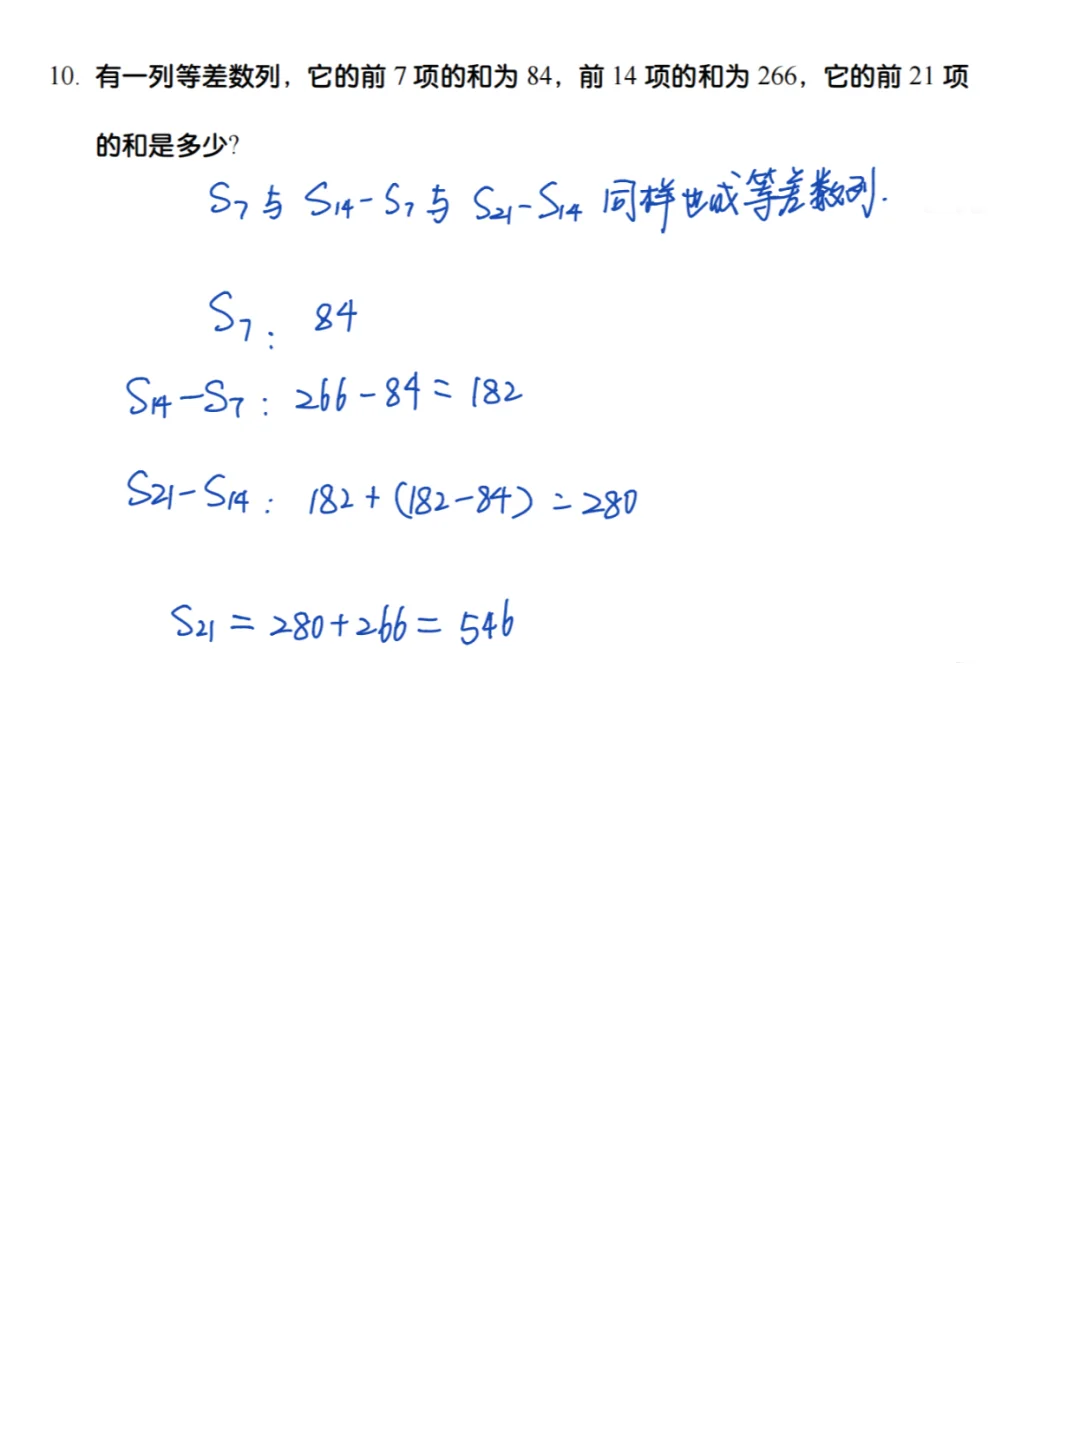 10. 有一列等差数列，它的前 7 项的和为 84，前 14 项的和为 266，它的前 21 项
的和是多少?
S₇与 S₁₄-S₇与 S₂₁-S₁₄ 同样也成等差数列.
S₇: 84
S₁₄-S₇: 266-84=182
S₂₁-S₁₄: 182+(182-84)=280
S₂₁=280+266=546